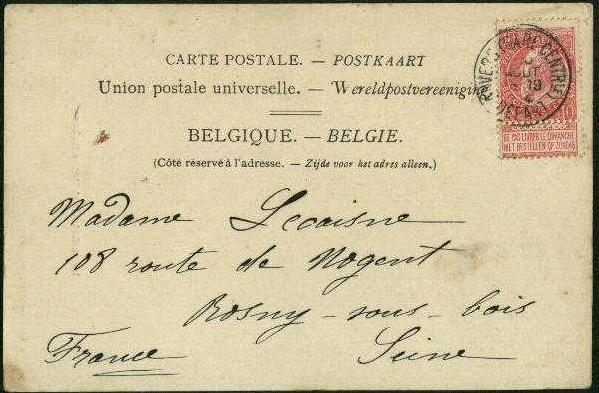 CARTE POSTALE. — POSTKAART
Union postale universelle. — Wereldpostvereeniging
BELGIQUE. — BELGIE.
(Côté réservé à l'adresse. — Zijde voor het adres alleen.)
ANVERS (GARE CENTRALE)
AOUT
19
DEPART
NE PAS LIVRER LE DIMANCHE
NIET BESTELLEN OP ZONDAG
Madame Lecaisne
108 route de Nogent
Rosny-sous-bois
France Seine